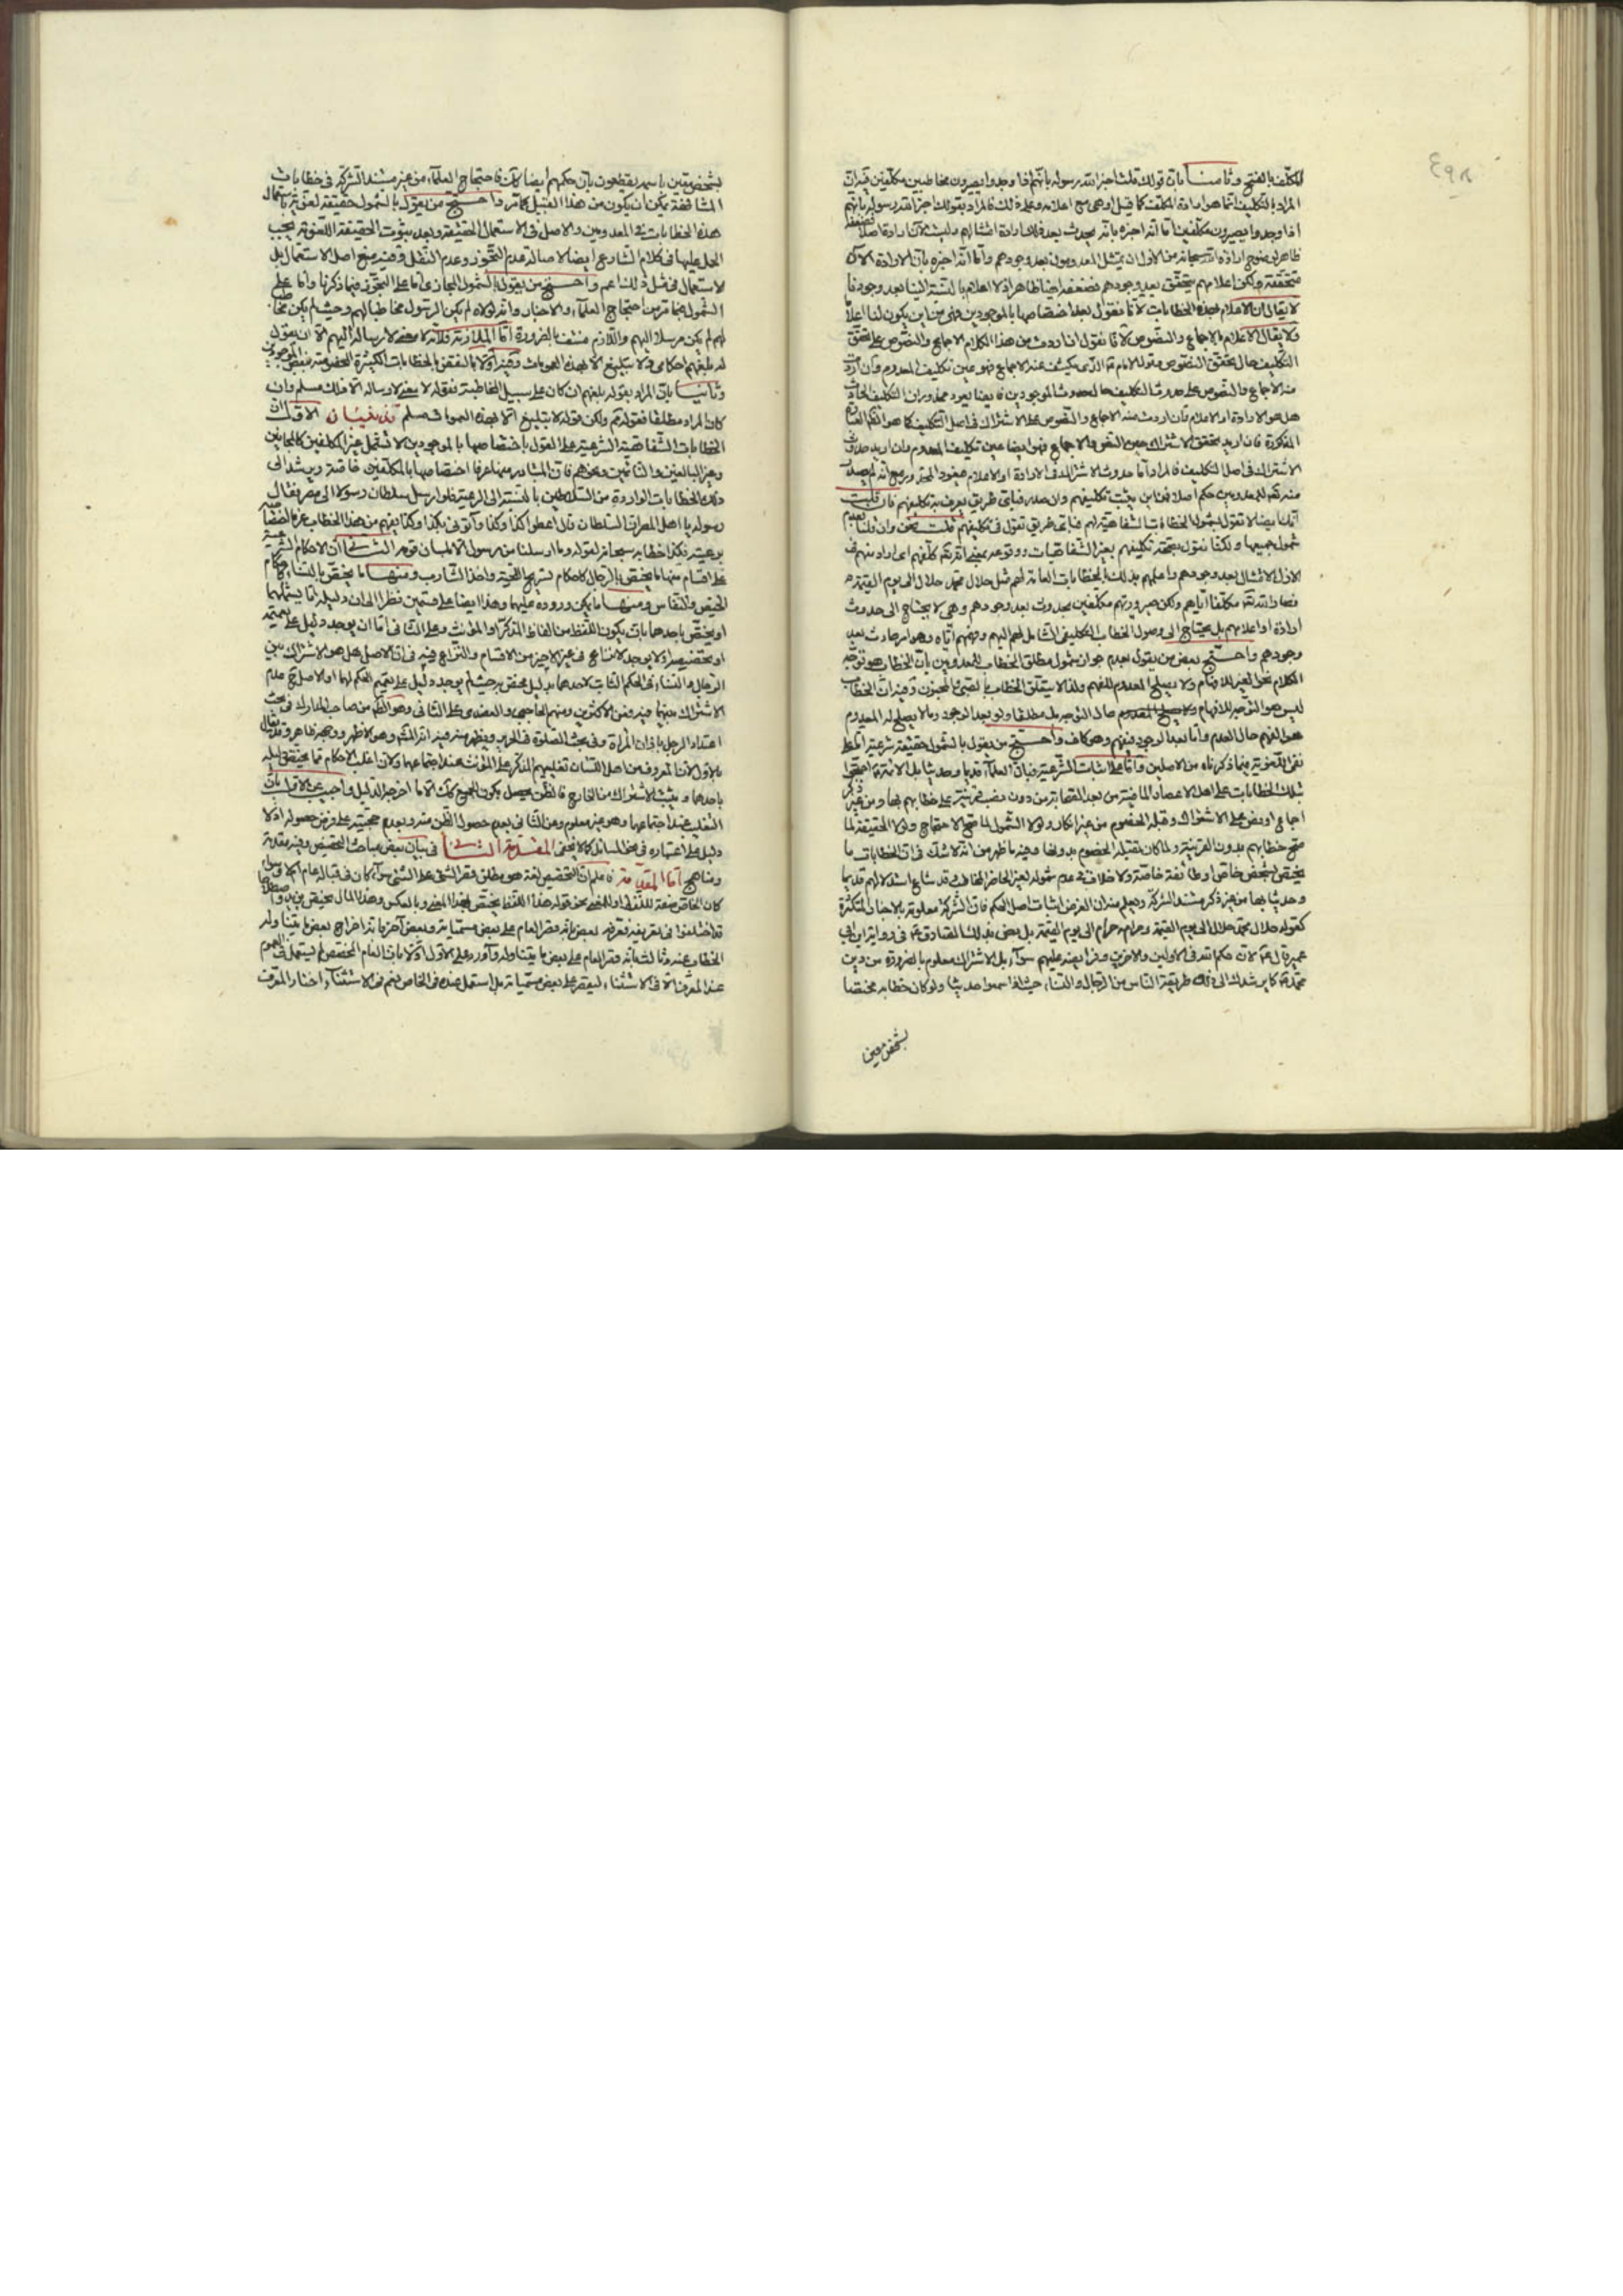 ٤٩٨
المكلّف بالفتح وثامنا بان قولك قلت اخبر الله رسوله بانّهم اذا وجدوا يصيرون مخاطبين مكلّفين فيه ان
المراد بالتكليف انّما هو ارادة المكلّف كما قيل او هى مع اعلامه وعلى ذلك فالمراد بقولك اخبر الله رسوله بانّهم
اذا وجدوا يصيرون مكلّفين امّا انه اخبره بانّه يحدث بعد ذلك ارادة امتثالهم وليست الآن ارادة اصلا فضعفه
ظاهر لوضوح ارادة الله سبحانه من الأزل ان يمتثل المعدومون بعد وجودهم وامّا انّه اخبره بان الارادة الآن
متحققة ولكن اعلامهم يتحقّق بعد وجودهم فضعفه ايضا ظاهر اذ لا اعلام بالنسبة الينا بعد وجودنا
لا يقال ان الاعلام بهذه الخطابات لانّا نقول بعد اختصاصها بالموجودين فمن اين يكون لنا اعلاما
ولا يقال الاعلام بالاجماع والنصوص لانّا نقول ان اردت من هذا الكلام الاجماع والنصوص على تحقّق
التكليف حال تحقّق النصوص وقول الامام ع الذى يكشف عنه الاجماع فهو عين تكليف المعدوم وان اردت
منه الاجماع والنصوص على حدوث التكليف حال حدوث الموجودين فايضا يعود محذور ان التكليف الحادث
هل هو الارادة او الاعلام فان اردت منه الاجماع والنصوص على الاشتراك فى اصل التكليف كما هو انكم العبارة
المذكورة فان اريد تحقق الاشتراك حين النصوص والاجماع فهو ايضا عين تكليف المعدوم وان اريد حدوث
الاشتراك فى اصل التكليف فالمراد اما حدوث الاشتراك فى الارادة او الاعلام فيعود المحذور ومع انّه لم يصدر
منه تعالى للمعدومين حكم اصلا فمن اين يثبت تكليفهم وان صدر فباىّ طريق يعرف به تكليفهم فان قلت
انّك ايضا لا تقول بشمول الخطابات الشفاهيّة لهم فباىّ طريق تقول فى تكليفهم قلت نحن وان قلنا بعدم
شمول جميعها ولكنّا نقول بتحقّق تكليفهم بغير الشفاهيات ووقوعه بمعنى انّه تعالى كلّفهم اى اراد منهم فى
الازل الامتثال بعد وجودهم واعلمهم بذلك بالخطابات العامة لهم مثل حلال محمد حلال الى يوم القيمة
فصار الله تعالى مكلّفا ايّاهم ولكن صيرورتهم مكلّفين يحدث بعد وجودهم وهى لا يحتاج الى حدوث
ارادة او اعلامهم بل يحتاج الى وصول الخطاب التكليفى الشامل لهم اليهم وفهمهم ايّاه وهو امر حادث بعد
وجودهم واحتجّ بعض من يقول بعدم جواز شمول مطلق الخطاب للمعدومين بان الخطاب هو توجّه
الكلام نحو الغير للافهام ولا يصلح المعدوم للفهم ولذا لا يتعلّق الخطاب بالصبىّ والمجنون وفيه ان الخطاب
ليس هو التوجّه للافهام حال التوجه بل مطلقا ولو بعد الوجود وما لا يصلح له المعدوم
هو الفهم حال العدم وامّا بعد الوجود فيفهم وهو كاف واحتجّ من يقول بالشمول حقيقة شرعيّة امّا على
نفى اللغويّة فبما ذكرناه من الاصلين وامّا على اثبات الشرعيّة فبانّ العلماء قديما وحديثا بل الائمة ع احتجّوا
بتلك الخطابات على اهل الاعصار الماضية من بعد الصحابة من دون نصب قرينة على خطابهم بها ومن غير ذكر
اجماع او نصّ على الاشتراك وقبله الخصوم من غير انكار ولولا الشمول لما صحّ الاحتجاج ولولا الحقيقة لما
صحّ خطابهم بدون القرينة ولما كان يقبله الخصوم بدونها وفيه ما ظهر من انّه لا شك فى ان الخطابات ما
يختصّ بشخص خاصّ او طائفة خاصّة ولا خلاف فى عدم شموله لغير الحاضر المخاطب قد شاع استدلالهم قديما
وحديثا بها من غير ذكر مستند الشركة ويعلم منه ان الغرض اثبات اصل الحكم فان الشركة معلومة بالاخبار المتكثّرة
كقوله حلال محمّد حلال الى يوم القيمة وحرامه حرام الى يوم القيمة بل نصّ بذلك الصادق ع فى رواية ابن ابى
عمير قال ع لان حكم الله فى الاولين والآخرين وفرائضه عليهم سواء بل الاشتراك معلوم بالضرورة من دين
محمّد ص كما يرشدك الى ذلك طريقة الناس من الرجال والنساء حيث اذا سمعوا حديثا ولو كان خطابه مختصا
بشخص معين
بشخص معيّن باسمه يقطعون بان حكمهم ايضا كك فاحتجاج العلماء من غير مستند الشركة فى خطابات
المشافهة يمكن ان يكون من هذا القبيل كما مرّ واحتجّ من يقول بالشمول حقيقة لغويّة باستعمال
هذه الخطابات فى المعدومين والاصل فى الاستعمال الحقيقة وبعد ثبوت الحقيقة اللغويّة يجب
الحمل عليها فى كلام الشارع ايضا لاصالة عدم التجوّز وعدم النقل وفيه منع اصل الاستعمال بل
الاستعمال فى مثل ذلك اعم واحتجّ من يقول بالشمول المجازى امّا على التجوّز فبما ذكرنا وامّا على
الشمول فبما مرّ من احتجاج العلماء والاخبار وانّه لولاه لم يكن الرسول مخاطبا لهم وحيث لم يكن مخاطبا
لهم لم يكن مرسلا اليهم واللازم منتف بالضرورة امّا الملازمة فلانّه لا معنى لارساله اليهم الّا ان يقول
له بلّغهم احكامى ولا تبليغ الّا بهذه العمومات وفيه اوّلا بالنقض بالخطابات الكثيرة المخصوصة ببعض الموجودين
وثانيا بان المراد بقوله بلّغهم ان كان على سبيل المخاطبة فقوله لا معنى لارساله الّا ذلك مسلم وان
كان المراد مطلقا فقوله نعم ولكن قوله لا تبليغ الّا بهذه العمومات مسلم تذنيبان الاوّل انّ
الخطابات الشفاهيّة الشرعيّة على القول باختصاصها بالموجودين لا تشمل غير المكلفين كالمجانين
وغير البالغين والنائمين ونحوهم فان المتبادر منها عرفا اختصاصها بالمكلّفين خاصّة ويرشد الى
ذلك الخطابات الواردة من السلاطين بالنسبة الى الرعيّة فلو ارسل سلطان رسولا الى مصر فقال
رسوله يا اهل المصر ان السلطان قال اعطوا كذا وكذا وأتونى بكذا وكذا يفهم من هذا الخطاب عرفا
برعيّته فكذا خطابه سبحانه لقوله وما ارسلنا من رسول الّا بلسان قومه الثانى ان الاحكام الشرعيّة
على اقسام منها ما يختصّ بالرجال كاحكام تسريح اللحية واخذ الشارب ومنها ما يختصّ بالنساء كاحكام
الحيض والنفاس ومنها ما يمكن وروده عليهما وهذا ايضا على قسمين نظرا الى ان دليله امّا يشملهما
او يختصّ باحدهما بان يكون اللفظ من الفاظ المذكر او المؤنث وعلى الثانى امّا ان يوجد دليل على تعميمه
او تخصيصه او لا يوجد لا نزاع فى غير الاخير من الاقسام والنزاع فيه فى ان الاصل هل هو الاشتراك بين
الرجال والنساء فى الحكم الثابت لاحدهما بدليل مختصّ به حيث لم يوجد دليل على تعميم الحكم لهما او الاصل ح عدم
الاشتراك بينهما فيه فمن الاكثرين ومنهم الحاجبى والعضدى على الثانى وهو الظاهر من صاحب المدارك فى بحث
اعتداد الرجل باذان المرأة وفى بحث الصلوة فى الحرير ويظهر منه فيه انه المشهور وهو الاظهر ووجهه ظاهر وقد يقال
بالاوّل لانّ المعروف من اهل اللسان تغليبهم المذكر على المؤنث عند اجتماعهما ولان اغلب الاحكام ممّا يختصّ دليله
باحدهما ويثبت الاشتراك من الخارج فالظن يحصل بكون الجميع كك الّا ما اخرجه الدليل واجيب عن الاوّل بان
التغليب عند اجتماعهما وهو غير معلوم وعن الثانى بعدم حصول الظن منه وبعدم حجيّته على فرض حصوله اذ لا
دليل على اعتباره فى نحو المسائل كما لا يخفى المقدمة الثانية فى بيان بعض مباحث التخصيص وفيه مقدمة
ومناهج امّا المقدّمة فاعلم ان التخصيص لغة هو مطلق قصر الشئ على الشئ سواء كان فى قباله عام ام لا وسواء
كان الخاصّ صفة للفظ او للمعنى نحو قوله هذا اللفظ يختصّ بهذا المعنى وبالعكس وهذا المال يختصّ بزيد واصطلاحا
قد اختلفوا فى تعريفه فعرّفه بعض بانّه قصر العام على بعض مسمّياته وبعض آخر بانّه اخراج بعض ما يتناوله
الخطاب عنه وثالث بانّه قصر العام على بعض ما يتناوله واورد على الاوّل اوّلا بان العام المخصّص لم يستعمل فى العموم
عند المعرّف الّا فى الاستثناء ليقصر على بعض مسمّياته بل استعمل عنده فى الخاص نعم فى الاستثناء اختار المعرّف